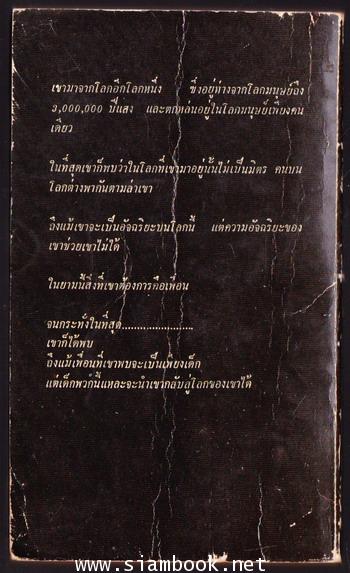 เขามาจากโลกอีกโลกหนึ่ง ซึ่งอยู่ห่างจากโลกมนุษย์ถึง
3,000,000 ปีแสง และตกหล่นอยู่ในโลกมนุษย์เพียงคน
เดียว
ในที่สุดเขาก็พบว่าในโลกที่เขามาอยู่นั้นไม่เป็นมิตร คนบน
โลกต่างพากันตามล่าเขา
ถึงแม้เขาจะเป็นอัจฉริยะบนโลกนี้ แต่ความอัจฉริยะของ
เขาช่วยเขาไม่ได้
ในยามนี้สิ่งที่เขาต้องการคือเพื่อน
จนกระทั่งในที่สุด......................
เขาก็ได้พบ
ถึงแม้เพื่อนที่เขาพบจะเป็นเพียงเด็ก
แต่เด็กพวกนี้แหละจะนำเขากลับสู่โลกของเขาได้
www.siambook.net